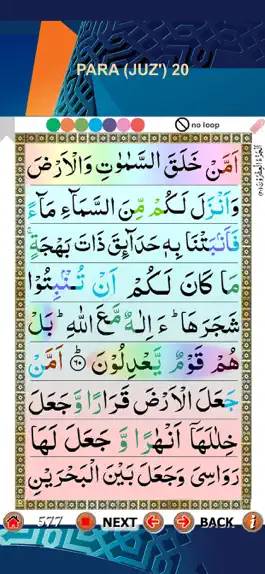 PARA (JUZ') 20
no loop
اَمَّنْ خَلَقَ السَّمٰوٰتِ وَالْاَرْضَ
وَاَنْزَلَ لَكُمْ مِّنَ السَّمَآءِ مَآءً
فَاَنْۢبَتْنَا بِهٖ حَدَآئِقَ ذَاتَ بَهْجَةٍ ۚ
مَا كَانَ لَكُمْ اَنْ تُنْۢبِتُوْا
شَجَرَهَا ؕ ءَاِلٰهٌ مَّعَ اللّٰهِ ؕ بَلْ
هُمْ قَوْمٌ يَّعْدِلُوْنَ ؕ ﴿۶۰﴾ اَمَّنْ
جَعَلَ الْاَرْضَ قَرَارًا وَّجَعَلَ
خِلٰلَهَاۤ اَنْهٰرًا وَّ جَعَلَ لَهَا
رَوَاسِىَ وَجَعَلَ بَيْنَ الْبَحْرَيْنِ
577 NEXT BACK i